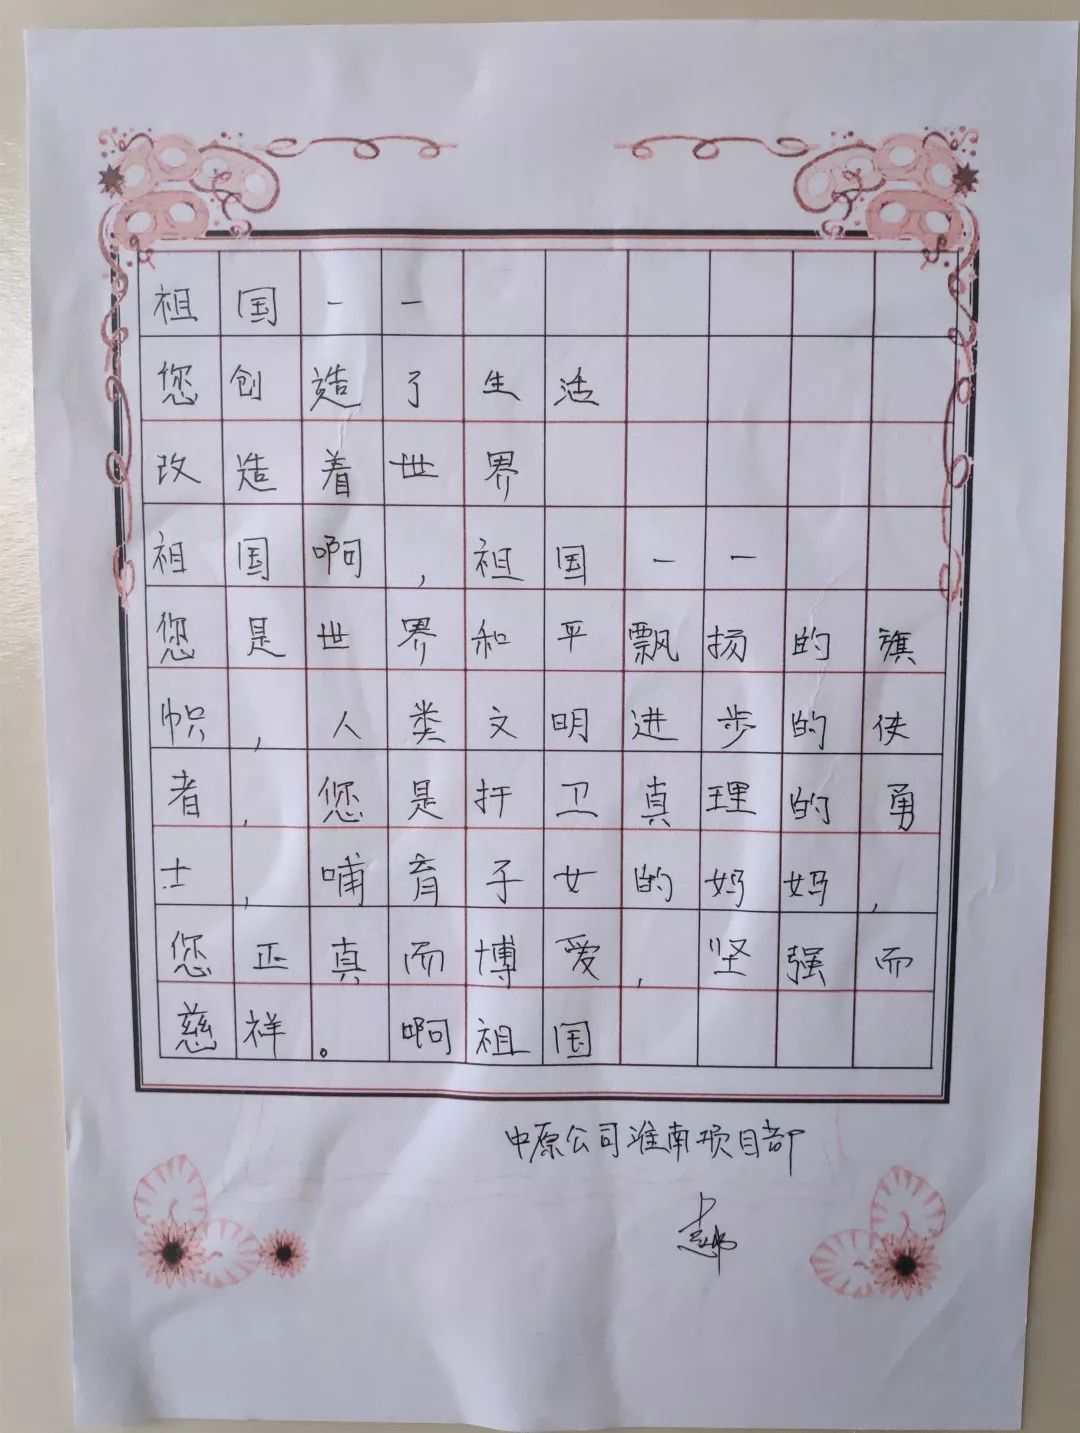 祖国一一
您创造了生活
改造着世界
祖国啊，祖国一一
您是世界和平飘扬的旗
帜，人类文明进步的使
者，您是扞卫真理的勇
士，哺育子女的妈妈，
您正真而博爱，坚强而
慈祥。啊祖国
中原公司淮南项目部